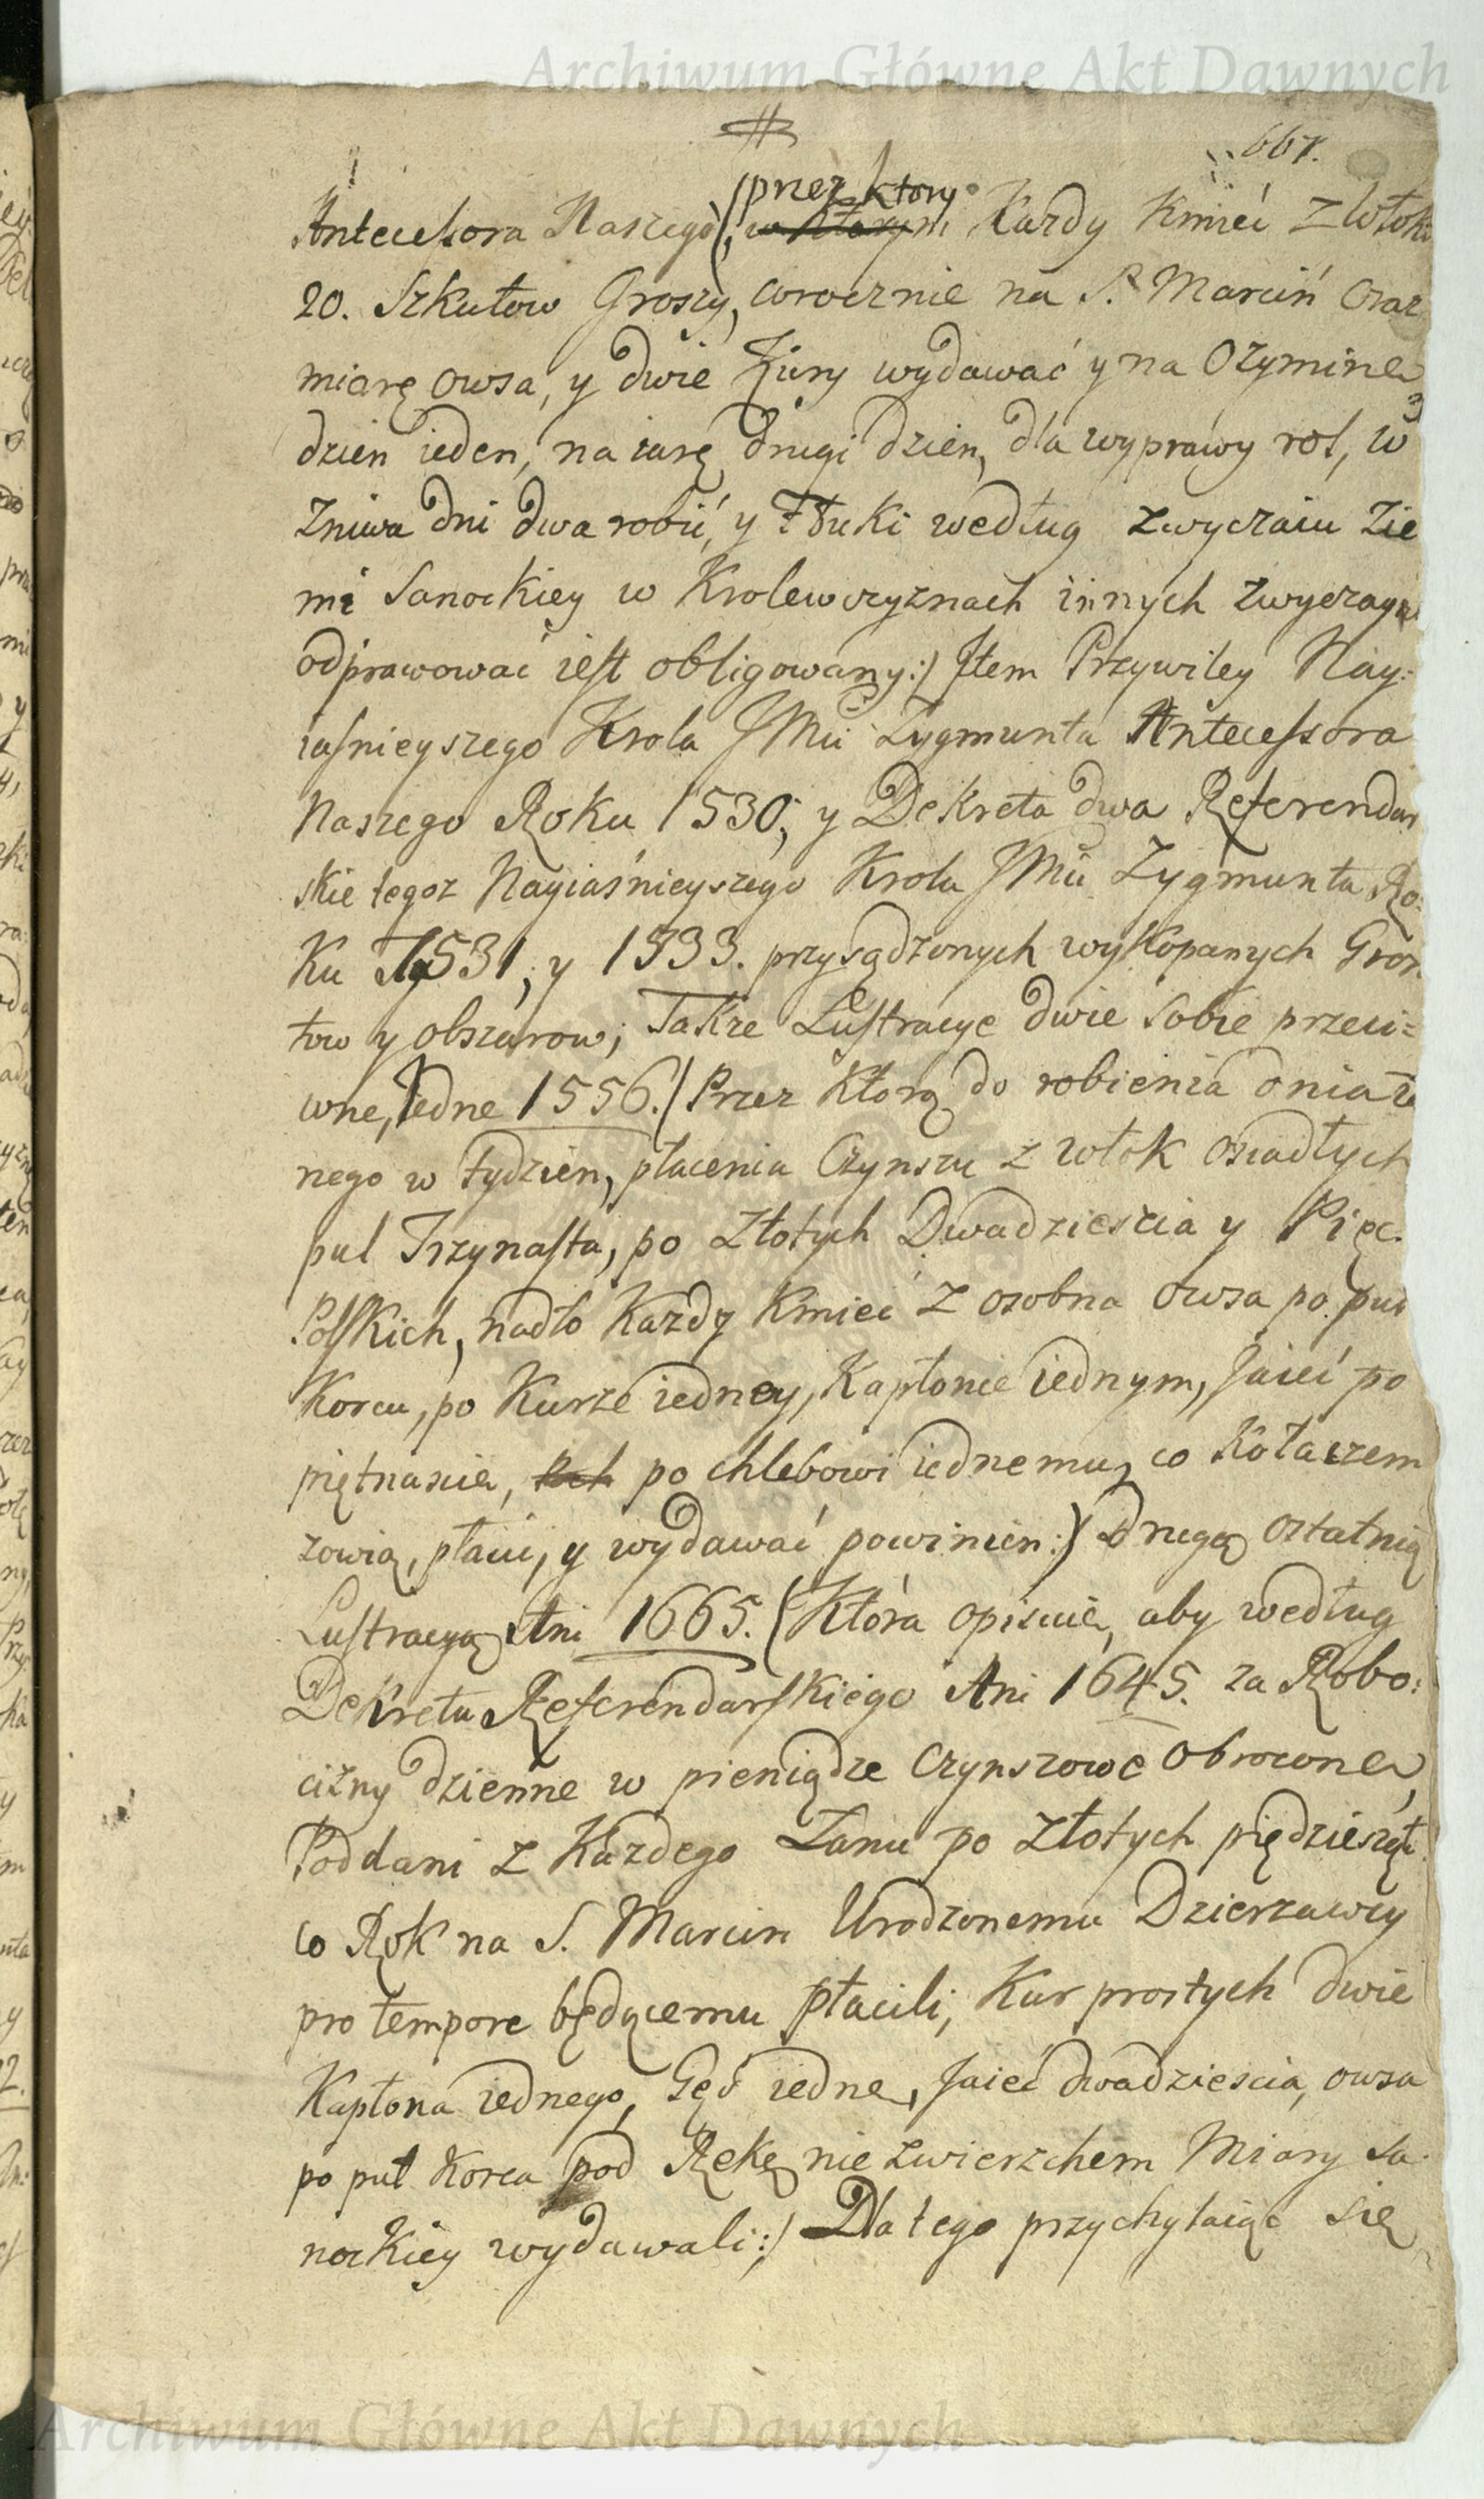 Archiwum Główne Akt Dawnych
667.
przez ktory
Antecessora Naszego (, w ktorym Kazdy Kmieć z Włoki
20. Szkutow Groszy, corocznie na S. Marcin oraz
miarę owsa, y dwie Kury wydawać y na Ozymine
dzien ieden, na iarę drugi dzien, dla wyprawy rol, w
Zniwa dni dwa robić, y Tłuki według zwyczaiu Zie
mi Sanockiey w Krolewczyznach innych zwyczayne
odprawować iest obligowany:) Item Przywiley Nay:
iasnieyszego Krola JMci Zygmunta Antecessora
Naszego Roku 1530; y Dekreta dwa Referendar
skie tegoz Nayiaśnieyszego Krola JMci Zygmunta Ro:
Ku 1531, y 1533. przysądzonych wykopanych Gron
tow y obszarow; Takze Lustracye dwie sobie przeci=
wne, Iedne 1556. (Przez Ktorą do robienia dnia ie
nego w tydzien, płacenia Czynszu z włok osiadłych
pul Trzynasta, po Złotych Dwadziescia y Pięc.
Polskich, nadto Kazdy Kmieć z osobna owsa po puł
Korcu, po Kurze iedney, Kapłonie iednym, Jaieć po
piętnascie, po chlebowi iednemu, co Kołaczem
zowią, płacić, y wydawać powinien:) Drugą ostatnią
Lustracyą Ani 1665. (Która opisuie, aby według
Dekretu Referendarskiego Ani 1645. za Robo:
cizny dzienne w pieniądze Czynszowe obrocone,
Poddani z Kazdego Łanu po Złotych piędziesząt
co Rok na S. Marcin Urodzonemu Dzierzawcy
pro tempore będącemu płacili, Kur prostych dwie
Kapłona iednego, Gęś iedne, Jaieć dwadziescia, owsa
po puł Korca pod Rękę nie zwierzchem Miary Sa:
nockiey wydawali:) Dla tego przychylaiąc się
Archiwum Główne Akt Dawnych